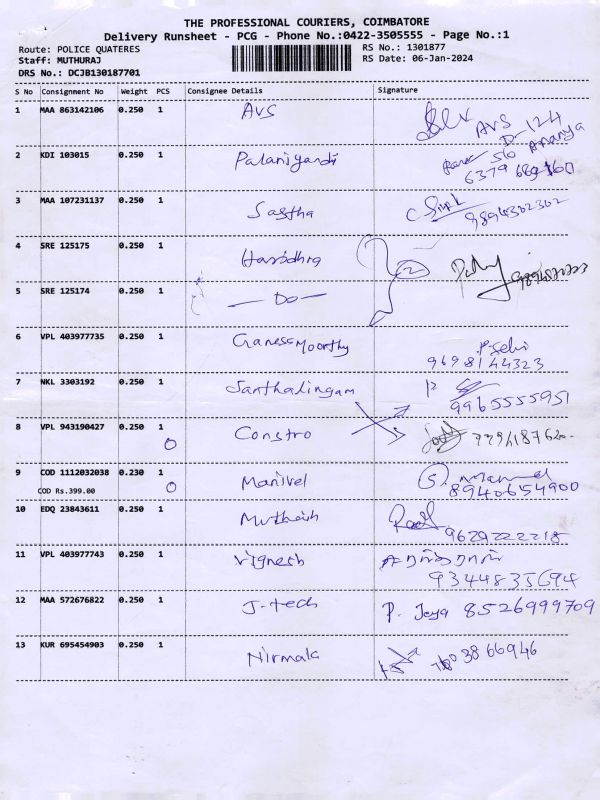 THE PROFESSIONAL COURIERS, COIMBATORE
Delivery Runsheet - PCG - Phone No.:0422-3505555 - Page No.:1
Route: POLICE QUATERES
RS No.: 1301877
Staff: MUTHURAJ
RS Date: 06-Jan-2024
DRS No.: DCJB130187701
S No Consignment No Weight PCS Consignee Details Signature
1 MAA 863142106 0.250 1 AVS AVS
D-124
Ananya
2 KDI 103015 0.250 1 Palaniyandi 56
3 MAA 107231137 0.250 1 Sastha 9894302302
4 SRE 125175 0.250 1 Haridhra
5 SRE 125174 0.250 1 — Do —
6 VPL 403977735 0.250 1 Ganessmoorthy P. Selvi
9698144323
7 NKL 3303192 0.250 1 Santhalingam 9965555951
8 VPL 943190427 0.250 1 Constro
9 COD 1112032038 0.230 1 Manivel
COD Rs.399.00 8940654900
10 EDQ 23843611 0.250 1 Muthaish
9629222218
11 VPL 403977743 0.250 1 Vignesh
12 MAA 572676822 0.250 1 J-tech P. Jeya 8526999709
13 KUR 695454903 0.250 1 Nirmala 3866946